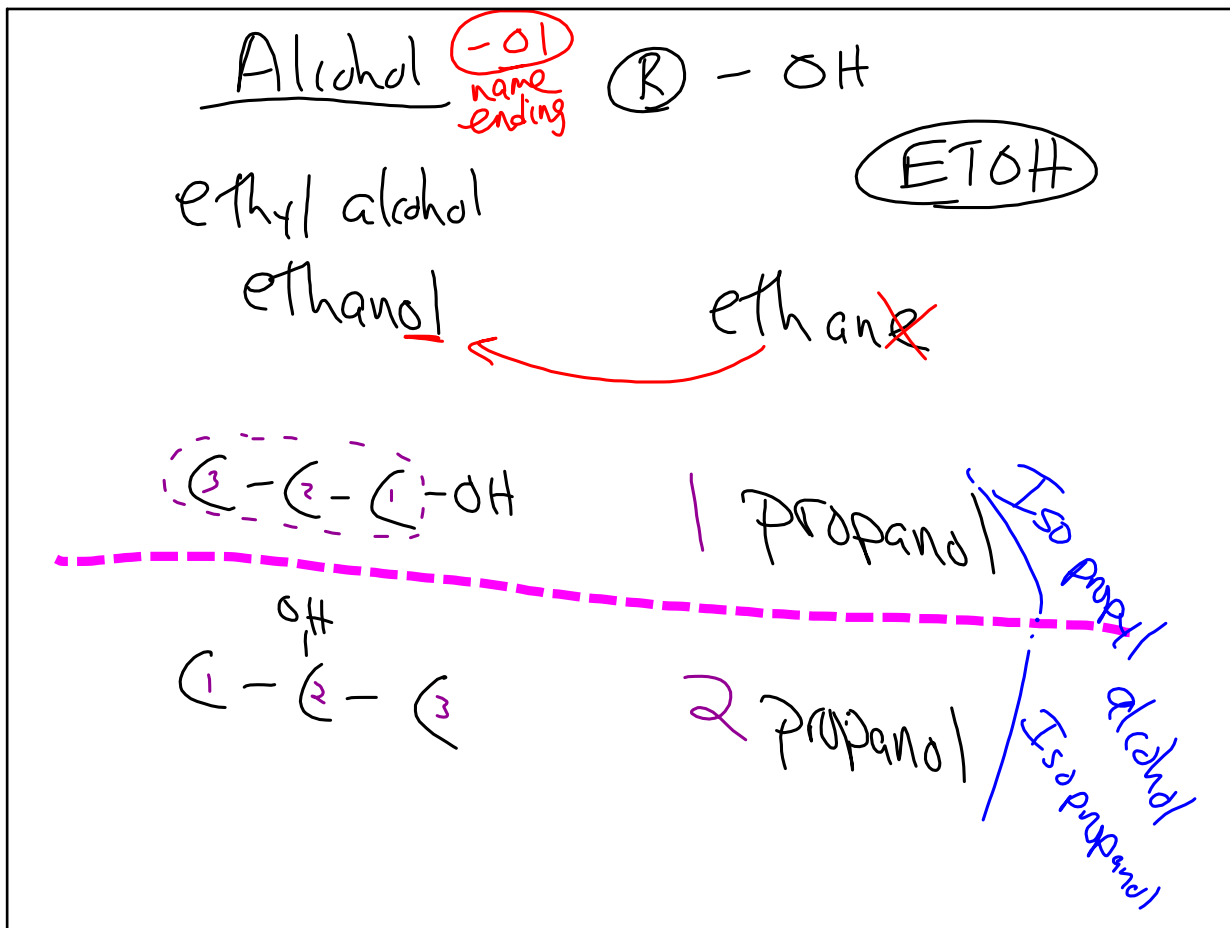 Alcohol -ol R - OH
name
ending
ETOH
ethyl alcohol
ethanol ethane
C3 - C2 - C1 - OH 1 propanol
OH
C1 - C2 - C3 2 propanol
Isopropyl alcohol
Isopropanol